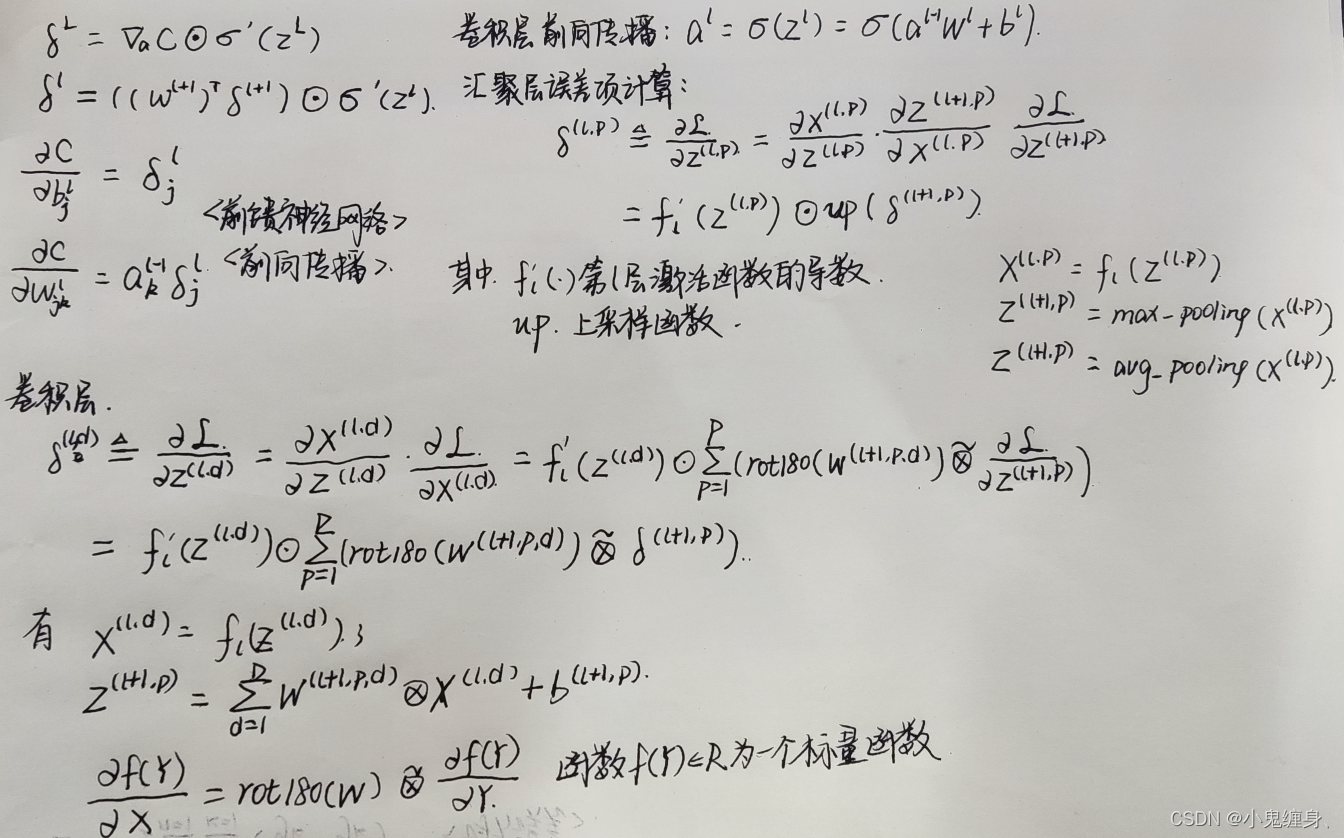 δ^L = ∇_a C ⊙ σ'(z^L)
δ^l = ((w^{l+1})^T δ^{l+1}) ⊙ σ'(z^l).
∂C/∂b_j^l = δ_j^l
<前馈神经网络>
∂C/∂w_{jk}^l = a_k^{l-1} δ_j^l <前向传播>.
卷积层前向传播: a^l = σ(z^l) = σ(a^{l-1} W^l + b^l).
汇聚层误差项计算:
δ^{(l,p)} ≜ ∂L/∂Z^{(l,p)} = ∂X^{(l,p)}/∂Z^{(l,p)} · ∂Z^{(l+1,p)}/∂X^{(l,p)} ∂L/∂Z^{(l+1,p)}
= f_l'(z^{(l,p)}) ⊙ up(δ^{(l+1,p)}).
其中. f_l'(·) 第l层激活函数的导数.
up. 上采样函数.
X^{(l,p)} = f_l(Z^{(l,p)})
Z^{(l+1,p)} = max-pooling(X^{(l,p)})
Z^{(l+1,p)} = avg-pooling(X^{(l,p)}).
卷积层.
δ^{(l,d)} ≜ ∂L/∂Z^{(l,d)} = ∂X^{(l,d)}/∂Z^{(l,d)} · ∂L/∂X^{(l,d)} = f_l'(z^{(l,d)}) ⊙ ∑_{p=1}^{P} (rot180(W^{(l+1,p,d)}) ⊗̃ ∂L/∂Z^{(l+1,p)})
= f_l'(z^{(l,d)}) ⊙ ∑_{p=1}^{P} (rot180(W^{(l+1,p,d)}) ⊗̃ δ^{(l+1,p)}).
有 X^{(l,d)} = f_l(z^{(l,d)}).;
Z^{(l+1,p)} = ∑_{d=1}^{D} W^{(l+1,p,d)} ⊗ X^{(l,d)} + b^{(l+1,p)}.
∂f(Y)/∂X = rot180(W) ⊗̃ ∂f(Y)/∂Y. 函数f(Y)∈R为一个标量函数
CSDN @小鬼缠身.